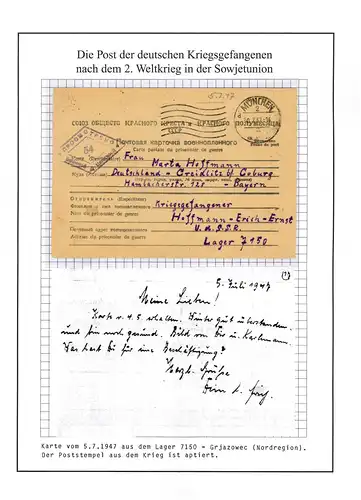 Die Post der deutschen Kriegsgefangenen
nach dem 2. Weltkrieg in der Sowjetunion
5.7.47
MÜNCHEN
2
СОЮЗ ОБЩЕСТВ КРАСНОГО КРЕСТА и КРАСНОГО ПОЛУМЕСЯЦА
СССР
Почтовая карточка военнопленного
Carte postale du prisonnier de guerre
54
Frau Marta Hoffmann
Deutschland - Creidlitz b/ Coburg
128 - Bayern
Отправитель (Expéditeur)
Kriegsgefangener
Nom du prisonnier de guerre
Hoffmann - Erich - Ernst
U. d. S. S. R.
Adresse du prisonnier de guerre
Lager 7150
5. Juli 1947
Meine Lieben!
Karte v. 4.5. erhalten. Winter gut überstanden
und bin noch gesund. Bild von Dir u.
Was hast Du für eine Beschäftigung?
Herzl. Grüße
Karte vom 5.7.1947 aus dem Lager 7150 = Grjazowec (Nordregion).
Der Poststempel aus dem Krieg ist aptiert.